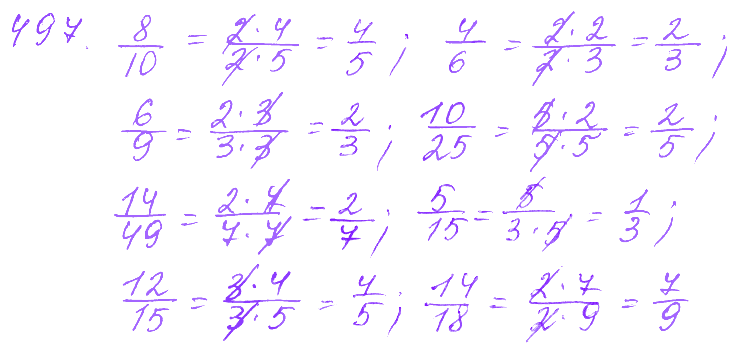 497. 8/10 = 2·4/2·5 = 4/5; 4/6 = 2·2/2·3 = 2/3;
6/9 = 2·3/3·3 = 2/3; 10/25 = 5·2/5·5 = 2/5;
14/49 = 2·7/7·7 = 2/7; 5/15 = 5/3·5 = 1/3;
12/15 = 3·4/3·5 = 4/5; 14/18 = 2·7/2·9 = 7/9